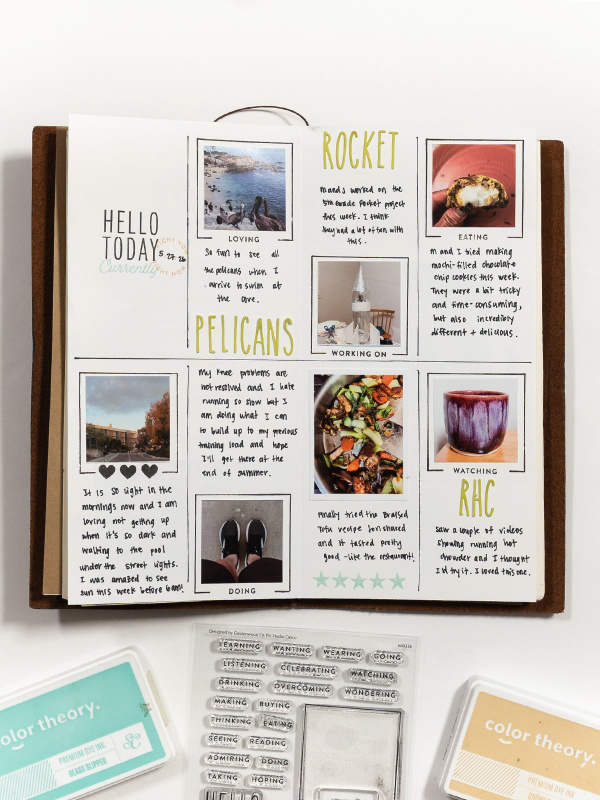 HELLO
TODAY
Currently
RIGHT NOW
5.27.26
LOVING
So fun to see all
the pelicans when I
arrive to swim at
the Cove.
PELICANS
ROCKET
M and J worked on the
5th grade Rocket project
this week. I think
they had a lot of fun with
this.
WORKING ON
EATING
M and I tried making
mochi-filled chocolate
chip cookies this week.
They were a bit tricky
and time-consuming,
but also incredibly
different + delicious.
It is so light in the
mornings now and I am
loving not getting up
when it's so dark and
walking to the pool
under the street lights.
I was amazed to see
sun this week before 6am!
My knee problems are
not resolved and I hate
running so slow but I
am doing what I can
to build up to my previous
training load and hope
I'll get there at the
end of summer.
DOING
Finally tried the Braised
Tofu recipe Jon shared
and it tasted pretty
good - like the restaurant!
WATCHING
RHC
Saw a couple of videos
showing running hot
chowder and I thought
I'd try it. I loved this one.
LEARNING WANTING WEARING GOING
LISTENING CELEBRATING WATCHING
DRINKING OVERCOMING WONDERING
MAKING BUYING
THINKING EATING
SEEING READING
ADMIRING DOING
TAKING HOPING
HELLO
color theory.
PREMIUM DYE INK
GLASS SLIPPER
color theory.
PREMIUM DYE INK